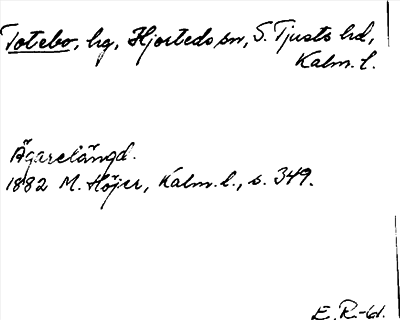 Totebo, hg, Hjorteds sn, S. Tjusts hd,
Kalm. l.
Ägarelängd.
1882 M. Höjer, Kalm. l., s. 349.
E. R.-61.